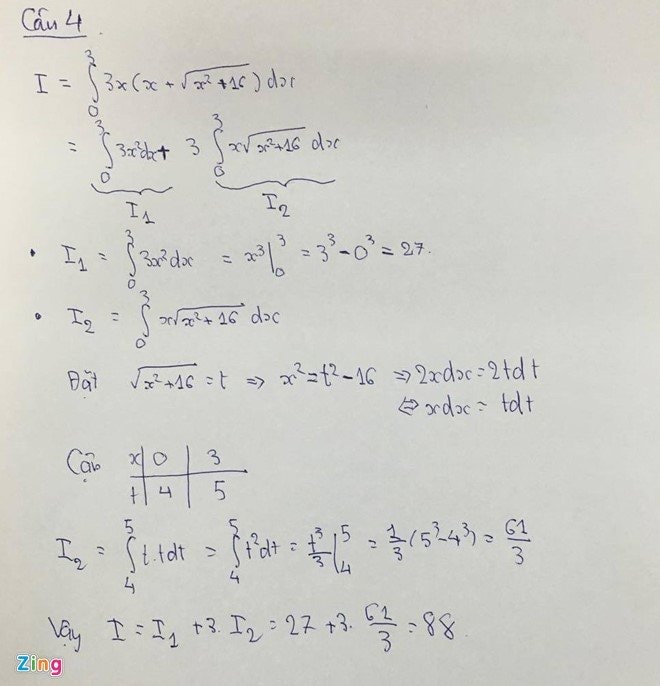 Câu 4
I = ∫₀³ 3x(x + √(x²+16)) dx
= ∫₀³ 3x²dx + 3 ∫₀³ x√(x²+16) dx
I₁ I₂
• I₁ = ∫₀³ 3x²dx = x³|₀³ = 3³ - 0³ = 27.
• I₂ = ∫₀³ x√(x²+16) dx
Đặt √(x²+16) = t ⇒ x² = t² - 16 ⇒ 2xdx = 2tdt
⇔ xdx = tdt
Cận x | 0 | 3
t | 4 | 5
I₂ = ∫₄⁵ t.tdt = ∫₄⁵ t²dt = t³/3 |₄⁵ = 1/3 (5³-4³) = 61/3
Vậy I = I₁ + 3. I₂ = 27 + 3. 61/3 = 88
Zing